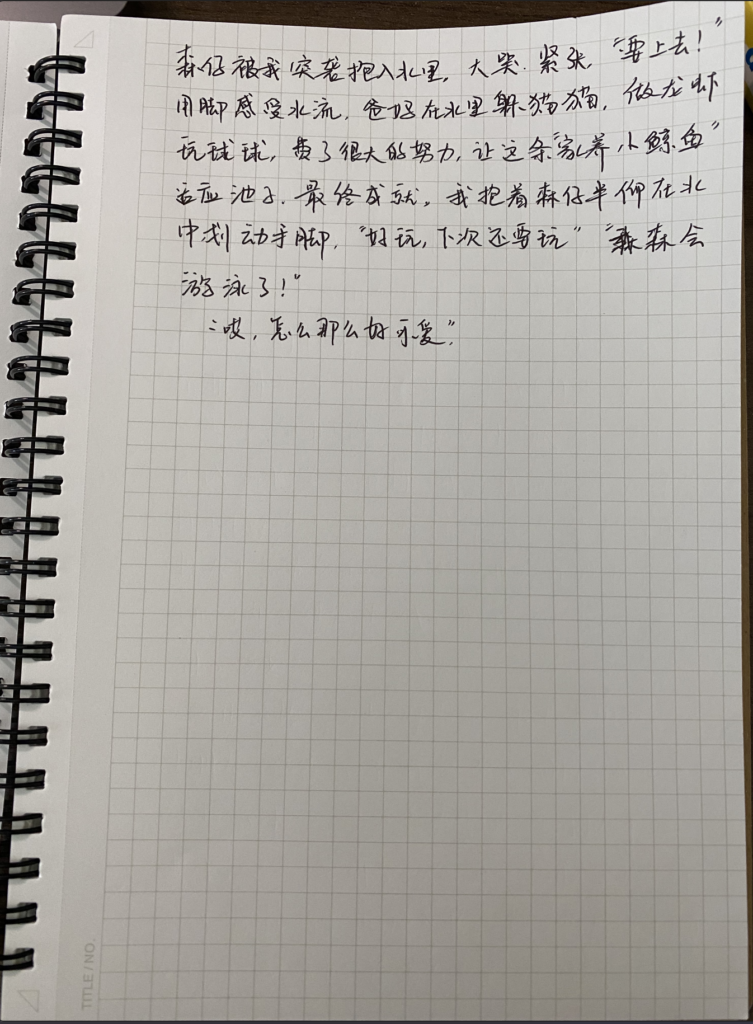 森仔被我突袭抱入水里，大哭.紧张，“要上去！”
用脚感受水流，爸妈在水里躲猫猫，做龙虾
玩球球，费了很大的努力，让这条“家养小鲸鱼”
适应池子。最终成就。我抱着森仔半仰在水
中划动手脚，“好玩，下次还要玩”“森森会
游泳了！”
“哎，怎么那么好可爱”。
TITLE/NO.